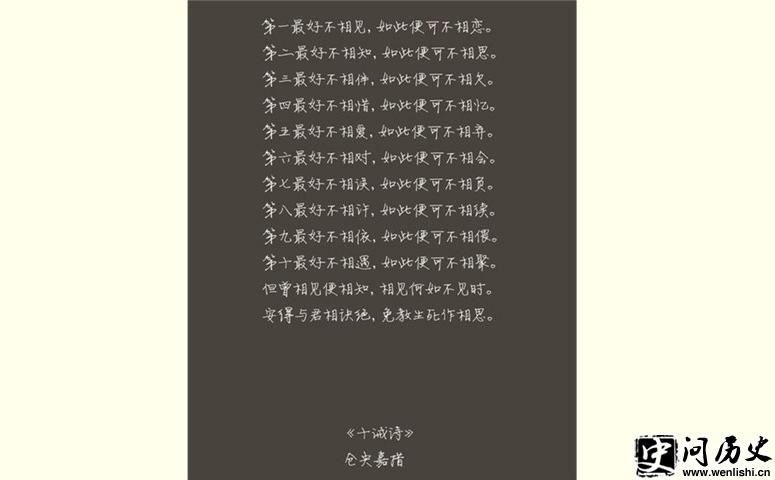 第一最好不相见,如此便可不相恋。
第二最好不相知,如此便可不相思。
第三最好不相伴,如此便可不相欠。
第四最好不相惜,如此便可不相忆。
第五最好不相爱,如此便可不相弃。
第六最好不相对,如此便可不相会。
第七最好不相误,如此便可不相负。
第八最好不相许,如此便可不相续。
第九最好不相依,如此便可不相偎。
第十最好不相遇,如此便可不相聚。
但曾相见便相知,相见何如不见时。
安得与君相诀绝,免教生死作相思。
《十诫诗》
仓央嘉措
史问历史
www.wenlishi.cn